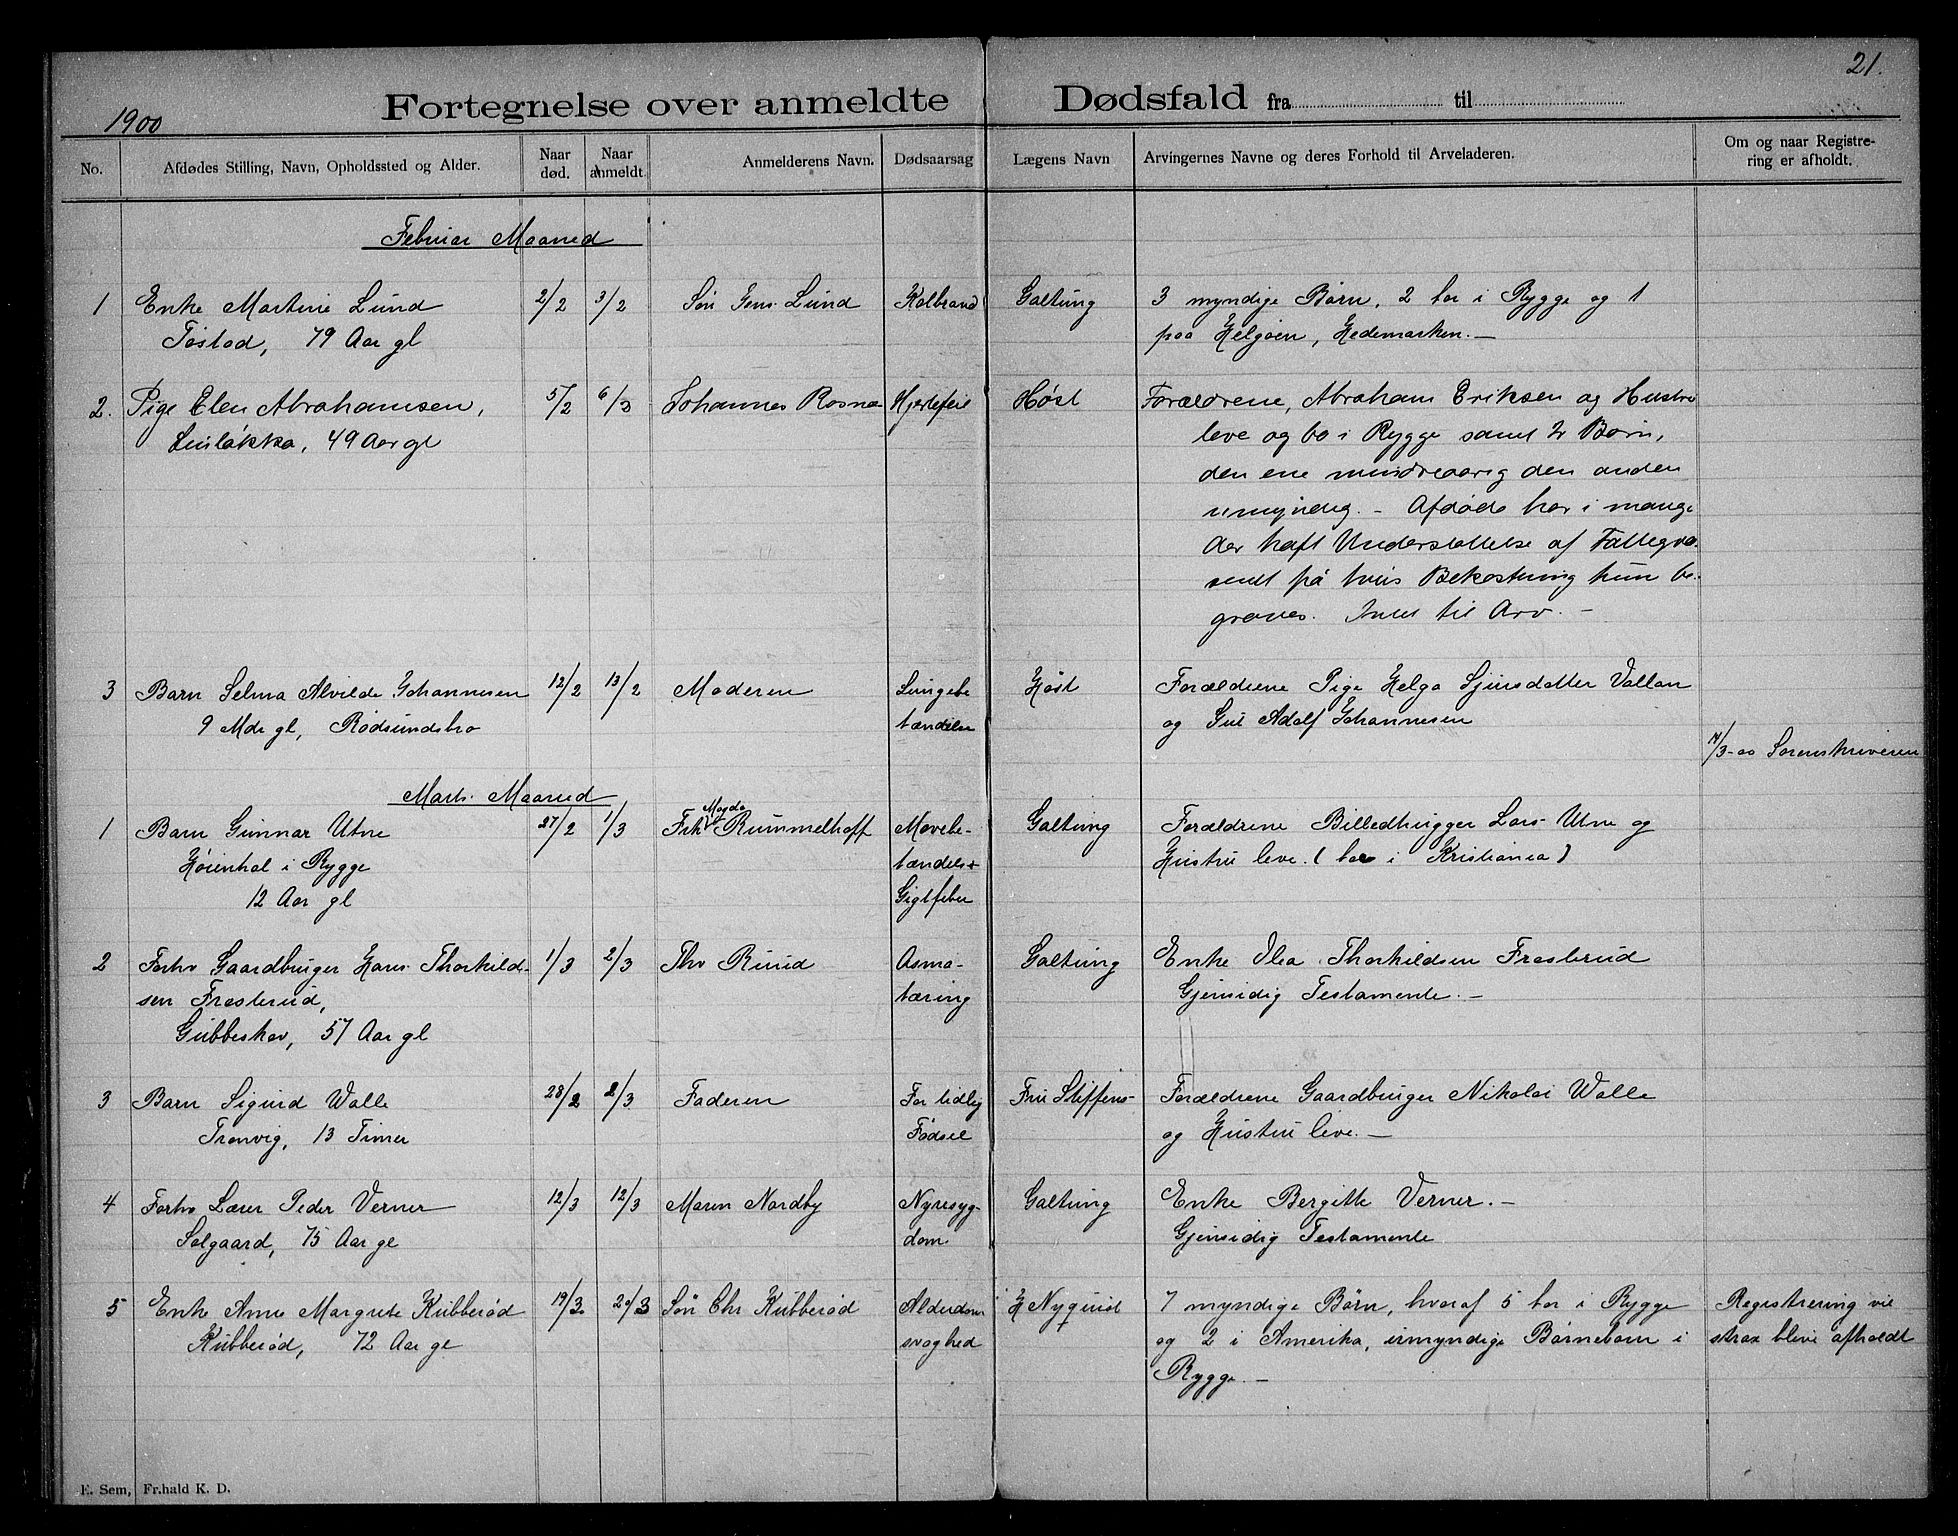 21.
1900
Fortegnelse over anmeldte Dødsfald fra til
No. Afdødes Stilling, Navn, Opholdssted og Alder. Naar død. Naar anmeldt. Anmelderens Navn. Dødsaarsag Lægens Navn Arvingernes Navne og deres Forhold til Arveladeren. Om og naar Registrering er afholdt.
Februar Maaned
1 Enke Martine Lund 2/2 3/2 Søn Jens Lund Kolbrand Galtung 3 myndige Børn, 2 bor i Rygge og 1
Tøstad, 79 Aar gl paa Helgøen, Hedemarken. —
2. Pige Elen Abrahamsen, 5/2 6/2 Johannes Rosnæ Hjertefeil Høst Forældrene, Abraham Eriksen og Hustru
49 Aar gl leve og bo i Rygge samt 2 Børn,
den ene mindreaarig den anden
umyndig. - Afdøde har i mange
Aar haft Understøttelse af Fattigvæ-
senet på hvis Bekostning hun be-
graves. Intet til Arv. -
3 Barn Selma Alvilde Johannesen 12/2 13/2 Moderen Lungebe Høst Forældrene Pige Helga Vallan
9 Mdr gl, Rødsundsbro tændelse og Adolf Johannesen
14/3-00 Sorenskriveren
Marts Maaned
1 Barn Gunnar Utne 27/2 1/3 Frk Magda Rummelhoff Mavebe- Galtung Forældrene Billedhugger Lars Utne og
Høienhal i Rygge tændels+ Hustru leve. (bor i Kristiania)
12 Aar gl Gigtfeber
2 Forhv Gaardbruger Hans Thorkild- 1/3 2/3 Thv Ruud Asma- Galtung Enke Olea Thorkildsen Frosterud
sen Frosterud, tæring Gjensidig Testamente. —
Gubbeskov, 57 Aar gl
3 Barn Sigurd Walle 28/2 2/3 Faderen For tidlig Fru Steffens- Forældrene Gaardbruger Nikolai Walle
Tronvig, 13 Timer Fødsel og Hustru leve. —
4 Forhv Lærer Peder Verner 12/3 12/3 Maren Nordby Nyresyg- Galtung Enke Bergitte Verner. —
Solgaard, 75 Aar gl dom Gjensidig Testamente
5 Enke Anne Margrete Kubberød 19/3 20/3 Søn Chr Kubberød Alderdom H Nyquist 7 myndige Børn, hvoraf 5 bor i Rygge Registrering vil
Kubberød, 72 Aar gl svaghed og 2 i Amerika, umyndige Børnebørn i strax blive afholdt
Rygge. —
E. Sem, Fr.hald K. D.